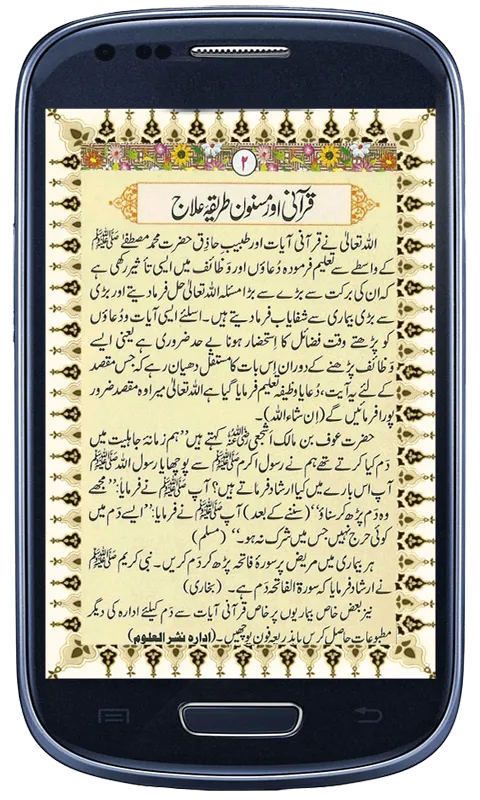 ۲
قرآنی اور مسنون طریقۂ علاج
اللہ تعالیٰ نے قرآنی آیات اور طبیب حاذِق حضرت محمد مصطفےٰ ﷺ
کے واسطے سے تعلیم فرمودہ دُعاؤں اور وَظائف میں ایسی تأثیر رکھی ہے
کہ ان کی برکت سے بڑے سے بڑا مسئلہ اللہ تعالیٰ حل فرما دیتے اور بڑی
سے بڑی بیماری سے شفایاب فرما دیتے ہیں۔ اسلئے ایسی آیات و دُعاؤں
کو پڑھتے وقت فضائل کا اِستحضار ہونا بے حد ضروری ہے یعنی ایسے
وَظائف پڑھنے کے دوران اِس بات کا مستقل دھیان رہے کہ جس مقصد
کے لئے یہ آیت، دُعا یا وظیفہ تعلیم فرمایا گیا ہے اللہ تعالیٰ میرا وہ مقصد ضرور
پورا فرمائیں گے (ان شاء اللہ)۔
حضرت عوف بن مالک اشجعی رضی اللہ عنہ کہتے ہیں ’’ہم زمانۂ جاہلیت میں
دَم کیا کرتے تھے ہم نے رسول اکرم ﷺ سے پوچھا یا رسول اللہ ﷺ
آپ اس بارے میں کیا ارشاد فرماتے ہیں؟ آپ ﷺ نے فرمایا: ’’مجھے
وہ دَم پڑھ کر سناؤ‘‘ (سننے کے بعد) آپ ﷺ نے فرمایا: ’’ایسے دَم میں
کوئی حرج نہیں جس میں شرک نہ ہو۔‘‘ (مسلم)
ہر بیماری میں مریض پر سورۂ فاتحہ پڑھ کر دَم کریں۔ نبی کریم ﷺ
نے ارشاد فرمایا کہ سورۃ الفاتحہ دَم ہے۔ (بخاری)
نیز بعض خاص بیماریوں پر خاص قرآنی آیات سے دَم کیلئے ادارہ کی دیگر
مطبوعات حاصل کریں یا بذریعہ فون پوچھیں۔ (ادارہ نشر العلوم)